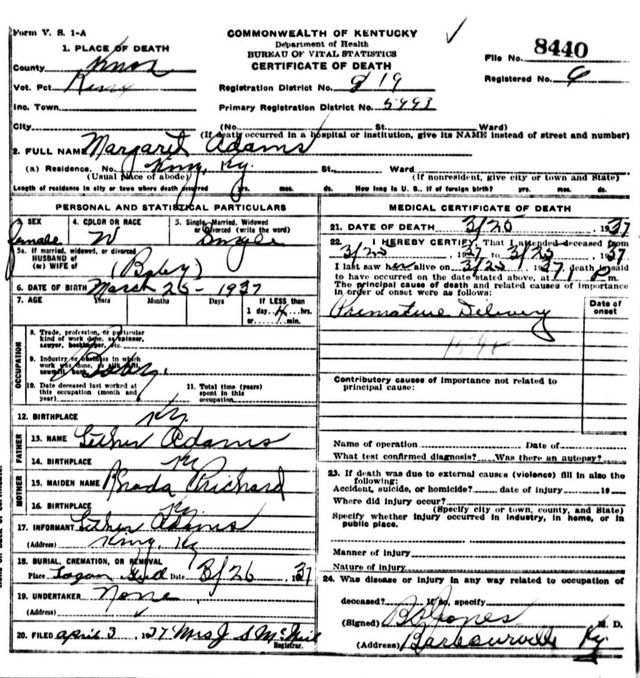 Form V. S. 1-A
COMMONWEALTH OF KENTUCKY
Department of Health
BUREAU OF VITAL STATISTICS
CERTIFICATE OF DEATH
File No. 8440
Registered No. 6
1. PLACE OF DEATH
County Knox
Vot. Pct
Inc. Town
City
Registration District No. 919
Primary Registration District No.
(No. St. Ward)
(If death occurred in a hospital or institution, give its NAME instead of street and number)
2. FULL NAME Margaret Adams
(a) Residence. No. Ky. St., Ward
(Usual place of abode) (If nonresident, give city or town and State)
Length of residence in city or town where death occurred yrs. mos. ds. How long in U. S., if of foreign birth? yrs. mos. ds.
PERSONAL AND STATISTICAL PARTICULARS
3. SEX female
4. COLOR OR RACE W
5. Single, Married, Widowed or Divorced (write the word) Single
5a. If married, widowed, or divorced
HUSBAND of
(or) WIFE of (Baby)
6. DATE OF BIRTH March 25 - 1937
7. AGE Years Months Days If LESS than
1 day 4 hrs.
or min.
8. Trade, profession, or particular
kind of work done, as spinner,
sawyer, bookkeeper, etc.
9. Industry or business in which
work was done, as silk mill,
sawmill, bank, etc. Baby.
10. Date deceased last worked at
this occupation (month and
year)
11. Total time (years)
spent in this
occupation
OCCUPATION
12. BIRTHPLACE Ky.
FATHER
13. NAME Adams
14. BIRTHPLACE Ky
MOTHER
15. MAIDEN NAME Broda Prichard
16. BIRTHPLACE Ky.
17. INFORMANT Adams
(Address) Ky
18. BURIAL, CREMATION, OR REMOVAL
Place Logan Date 3/26 1937
19. UNDERTAKER None
(Address)
20. FILED April 3, 1937 Mrs J S
Registrar.
MEDICAL CERTIFICATE OF DEATH
21. DATE OF DEATH 3/25 1937
22. I HEREBY CERTIFY, That I attended deceased from
3/25, 1937, to 3/25, 1937
I last saw her alive on 3/25, 1937, death is said
to have occurred on the date stated above, at m.
The principal cause of death and related causes of importance
in order of onset were as follows:
Date of onset
Premature Delivery
Contributory causes of importance not related to
principal cause:
Name of operation Date of
What test confirmed diagnosis? Was there an autopsy?
23. If death was due to external causes (violence) fill in also the
following:
Accident, suicide, or homicide? date of injury 19
Where did injury occur?
(Specify city or town, county, and State)
Specify whether injury occurred in industry, in home, or in
public place.
Manner of injury
Nature of injury
24. Was disease or injury in any way related to occupation of
deceased? If so, specify
(Signed) Jones M. D.
(Address) Barbourville Ky.